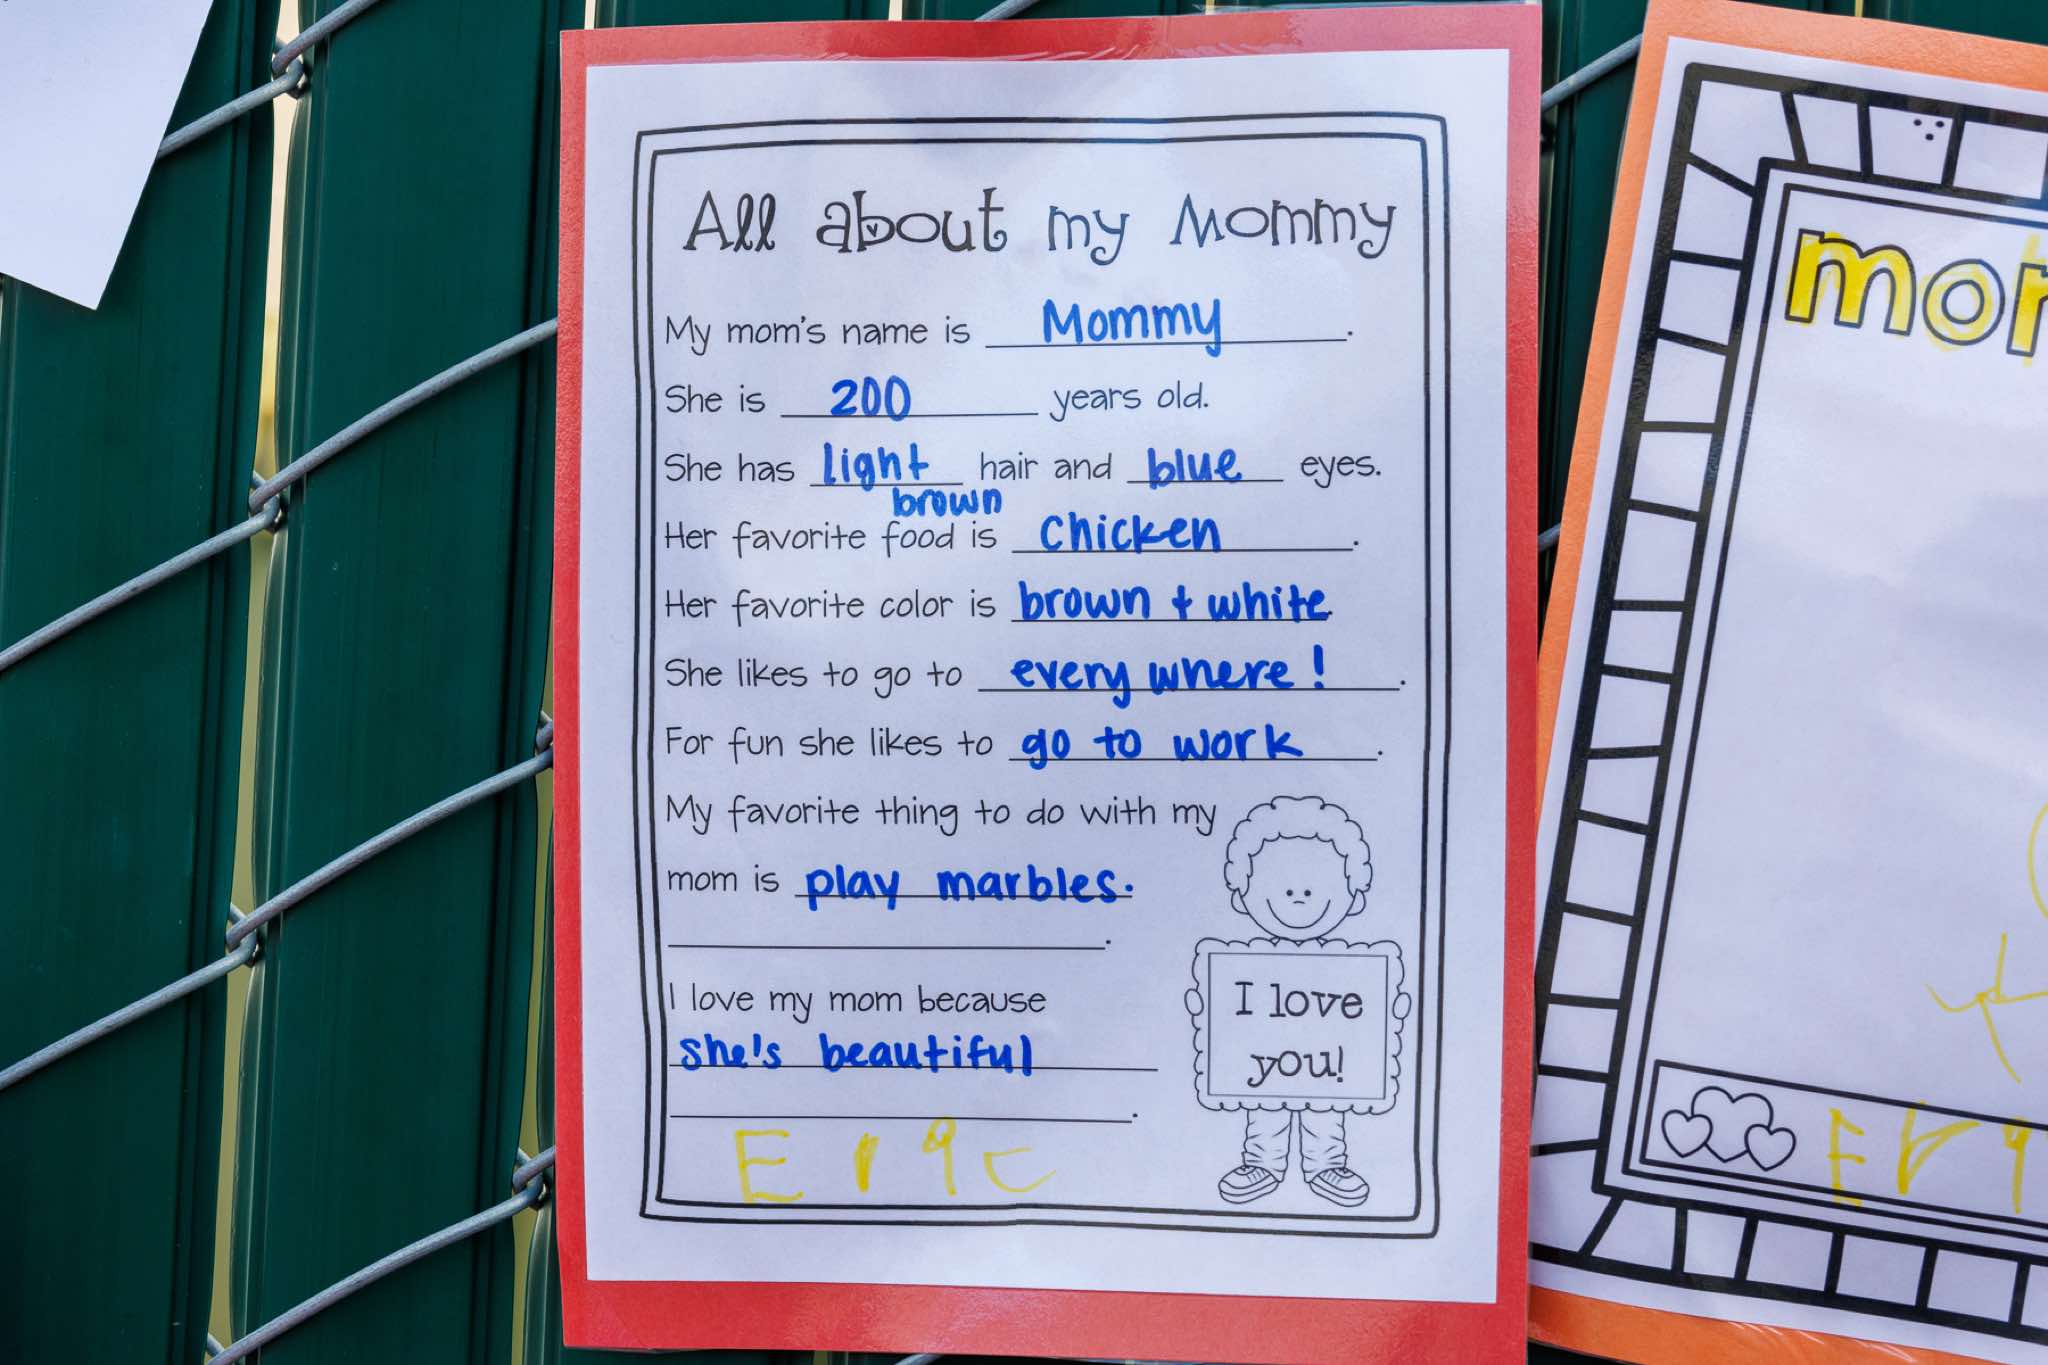 All about my Mommy
My mom's name is Mommy.
She is 200 years old.
She has light hair and blue eyes.
brown
Her favorite food is chicken.
Her favorite color is brown + white.
She likes to go to everywhere!.
For fun she likes to go to work.
My favorite thing to do with my
mom is play marbles.
I love my mom because
she's beautiful
I love
you!
Eric
mom
Eri